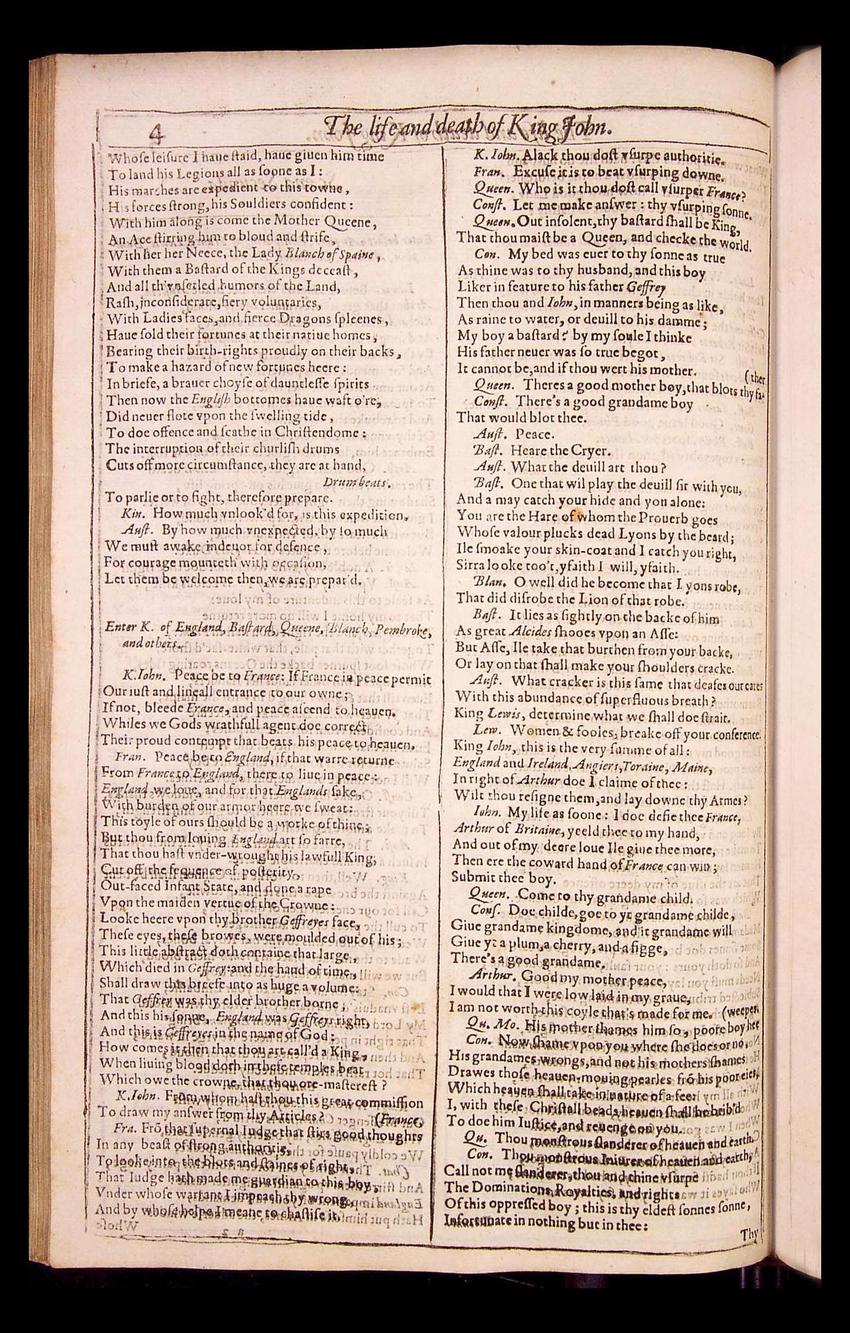 4
The life and death of King John.
Whose leisure I haue staid, haue giuen him time
To land his Legions all as soone as I:
His marches are expedient to this towne,
His forces strong, his Souldiers confident:
With him along is come the Mother Queene,
An Ace stirring him to bloud and strife,
With her her Neece, the Lady Blanch of Spaine,
With them a Bastard of the Kings deceast,
And all th'vnsetled humors of the Land,
Rash, inconsiderate, fiery voluntaries,
With Ladies faces, and fierce Dragons spleenes,
Haue sold their fortunes at their natiue homes,
Bearing their birth-rights proudly on their backs,
To make a hazard of new fortunes heere:
In briefe, a brauer choyse of dauntlesse spirits
Then now the English bottomes haue waft o're,
Did neuer flote vpon the swelling tide,
To doe offence and scathe in Christendome:
The interruption of their churlish drums
Cuts off more circumstance, they are at hand,
Drum beats.
To parlie or to fight, therefore prepare.
Kin. How much vnlook'd for, is this expedition.
Aust. By how much vnexpected, by so much
We must awake indeuor for defence,
For courage mounteth with occasion,
Let them be welcome then, we are prepar'd.
Enter K. of England, Bastard, Queene, Blanch, Pembroke,
and others.
K.Iohn. Peace be to France: If France in peace permit
Our iust and lineall entrance to our owne;
If not, bleede France, and peace ascend to heauen.
Whiles we Gods wrathfull agent doe correct
Their proud contempt that beats his peace to heauen.
Fran. Peace be to England, if that warre returne
From France to England, there to liue in peace:
England we loue, and for that Englands sake,
With burden of our armor heere we sweat:
This toyle of ours should be a worke of thine;
But thou from louing England art so farre,
That thou hast vnder-wrought his lawfull King,
Cut off the sequence of posterity,
Out-faced Infant State, and done a rape
Vpon the maiden vertue of the Crowne:
Looke heere vpon thy brother Geffreyes face,
These eyes, these browes, were moulded out of his;
This little abstract doth containe that large,
Which died in Geffrey: and the hand of time,
Shall draw this breefe into as huge a volume:
That Geffrey was thy elder brother borne,
And this his sonne, England was Geffreys right,
And this is Geffreyes in the name of God:
How comes it then that thou art call'd a King,
When liuing blood doth in these temples beat
Which owe the crowne, that thou ore-masterest?
K.Iohn. From whom hast thou this great commission
To draw my answer from thy Articles? (France,
Fra. Frō that supernal Iudge that stirs good thoughts
In any beast of strong authoritie,
To looke into the blots and staines of right,
That Iudge hath made me guardian to this boy,
Vnder whose warrant I impeach thy wrong,
And by whose helpe I meane to chastise it.
K. Iohn. Alack thou dost vsurpe authoritie.
Fran. Excuse it is to beat vsurping downe.
Queen. Who is it thou dost call vsurper France?
Const. Let me make answer: thy vsurping sonne.
Queen. Out insolent, thy bastard shall be King,
That thou maist be a Queen, and checke the world.
Con. My bed was euer to thy sonne as true
As thine was to thy husband, and this boy
Liker in feature to his father Geffrey
Then thou and Iohn, in manners being as like,
As raine to water, or deuill to his damme;
My boy a bastard? by my soule I thinke
His father neuer was so true begot,
It cannot be, and if thou wert his mother. (ther
Queen. Theres a good mother boy, that blots thy fa-
Const. There's a good grandame boy
That would blot thee.
Aust. Peace.
Bast. Heare the Cryer.
Aust. What the deuill art thou?
Bast. One that wil play the deuill sir with you,
And a may catch your hide and yon alone:
You are the Hare of whom the Prouerb goes
Whose valour plucks dead Lyons by the beard;
Ile smoake your skin-coat and I catch you right,
Sirra looke too't, yfaith I will, yfaith.
Blan. O well did he become that Lyons robe,
That did disrobe the Lion of that robe.
Bast. It lies as sightly on the backe of him
As great Alcides shooes vpon an Asse:
But Asse, Ile take that burthen from your backe,
Or lay on that shall make your shoulders cracke.
Aust. What cracker is this same that deafes our eares
With this abundance of superfluous breath?
King Lewis, determine what we shall doe strait.
Lew. Women & fooles, breake off your conference.
King Iohn, this is the very summe of all:
England and Ireland, Angiers, Toraine, Maine,
In right of Arthur doe I claime of thee:
Wilt thou resigne them, and lay downe thy Armes?
Iohn. My life as soone: I doe defie thee France,
Arthur of Britaine, yeeld thee to my hand,
And out of my deere loue Ile giue thee more,
Then ere the coward hand of France can win;
Submit thee boy.
Queen. Come to thy grandame child.
Cons. Doe childe, goe to yt grandame childe,
Giue grandame kingdome, and it grandame will
Giue yt a plum, a cherry, and a figge,
There's a good grandame.
Arthur. Good my mother peace,
I would that I were low laid in my graue,
I am not worth this coyle that's made for me. (weepes
Qu. Mo. His mother shames him so, poore boy hee
Con. Now shame vpon you where she does or no,
His grandames wrongs, and not his mothers shames
Drawes those heauen-mouing pearles frō his poor eies,
Which heauen shall take in nature of a fee:
I, with these Christall beads heauen shall be brib'd
To doe him Iustice, and reuenge on you.
Qu. Thou monstrous slanderer of heauen and earth.
Con. Thou monstrous Iniurer of heauen and earth,
Call not me slanderer, thou and thine vsurpe
The Dominations, Royalties, and rights
Of this oppressed boy; this is thy eldest sonnes sonne,
Infortunate in nothing but in thee:
Thy